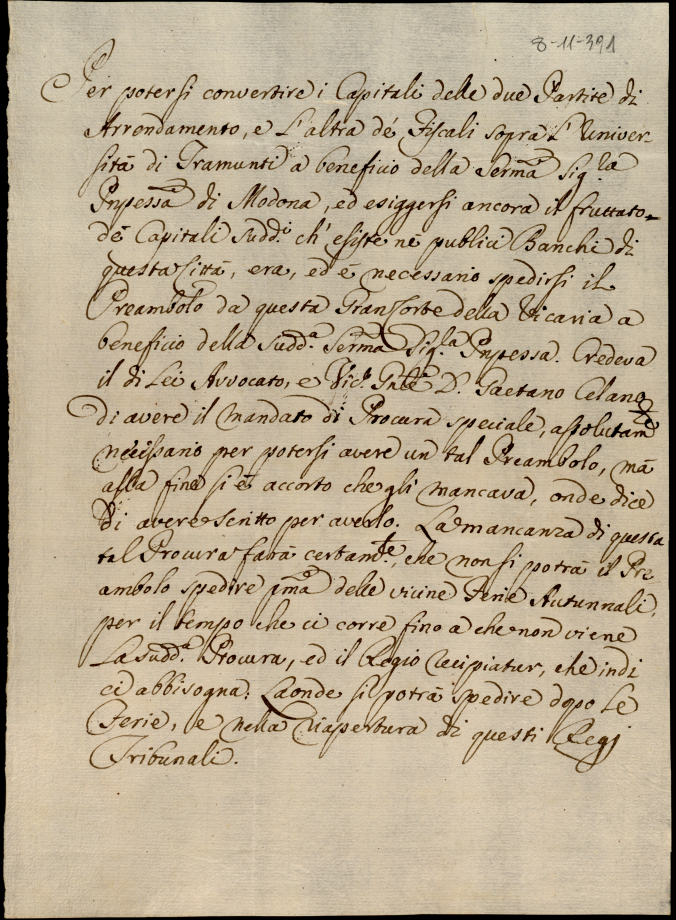 8-11-391
Per potersi convertire i Capitali delle due Partite di
Arrendamento, e L'altra dé Fiscali sopra L'Univer-
sitá di Tramunti a beneficio della Serma Sig.la
Pnpessa di Modona, ed esiggersi ancora il fruttato
dé Capitali Sudd.i ch' esiste né publici Banchi di
questa Cittá, era, ed é necessario spedirsi il
Preambolo da questa Gran Corte della Vicaria a
beneficio della Sudd.a Serma Sig.la Pnpessa. Credeva
il di Lei Avvocato, e D. Gaetano Celano
di avere il mandato di Procura speciale, assolutam.te
necessario per potersi avere un tal Preambolo, má
alla fine si é accorto che gli mancava, onde dice
di avere scritto per averlo. La mancanza di questa
tal Procura fará certam.te, che non si potrá il Pre
ambolo spedire pma delle vicine Ferie Autunnali,
per il tempo che ci corre fino a che non viene
La sudd.a Procura, ed il Regio recipiatur, che indi
ci abbisogna: Laonde si potrá spedire dopo Le
Ferie, e nella riapertura di questi Regj
Tribunali.